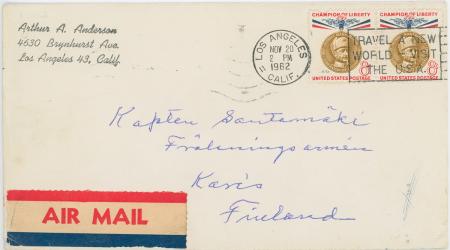 Arthur A. Anderson
4630 Brynhurst Ave.
Los Angeles 43, Calif.
LOS ANGELES
NOV 20
2 PM
1962
CALIF.
CHAMPION OF LIBERTY
CHAMPION OF LIBERTY
TRAVEL A NEW
WORLD VISIT
THE U.S.A.
8¢
8¢
UNITED STATES POSTAGE
UNITED STATES POSTAGE
Kapten Santamäki
Frälsningsarmén
Karis
Finland
AIR MAIL